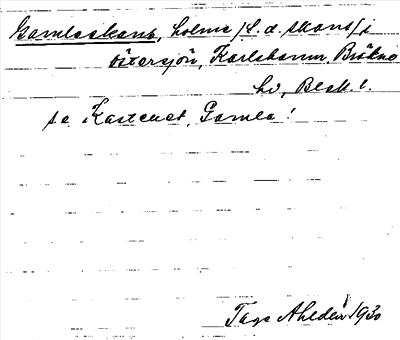 Gamlaskans, holme /f. d. skans/ i
Östersjön, Karlshamn, Bräkne
hd, Blek. l.
se Kastellet, Gamla!
Tage Ahldén 1930